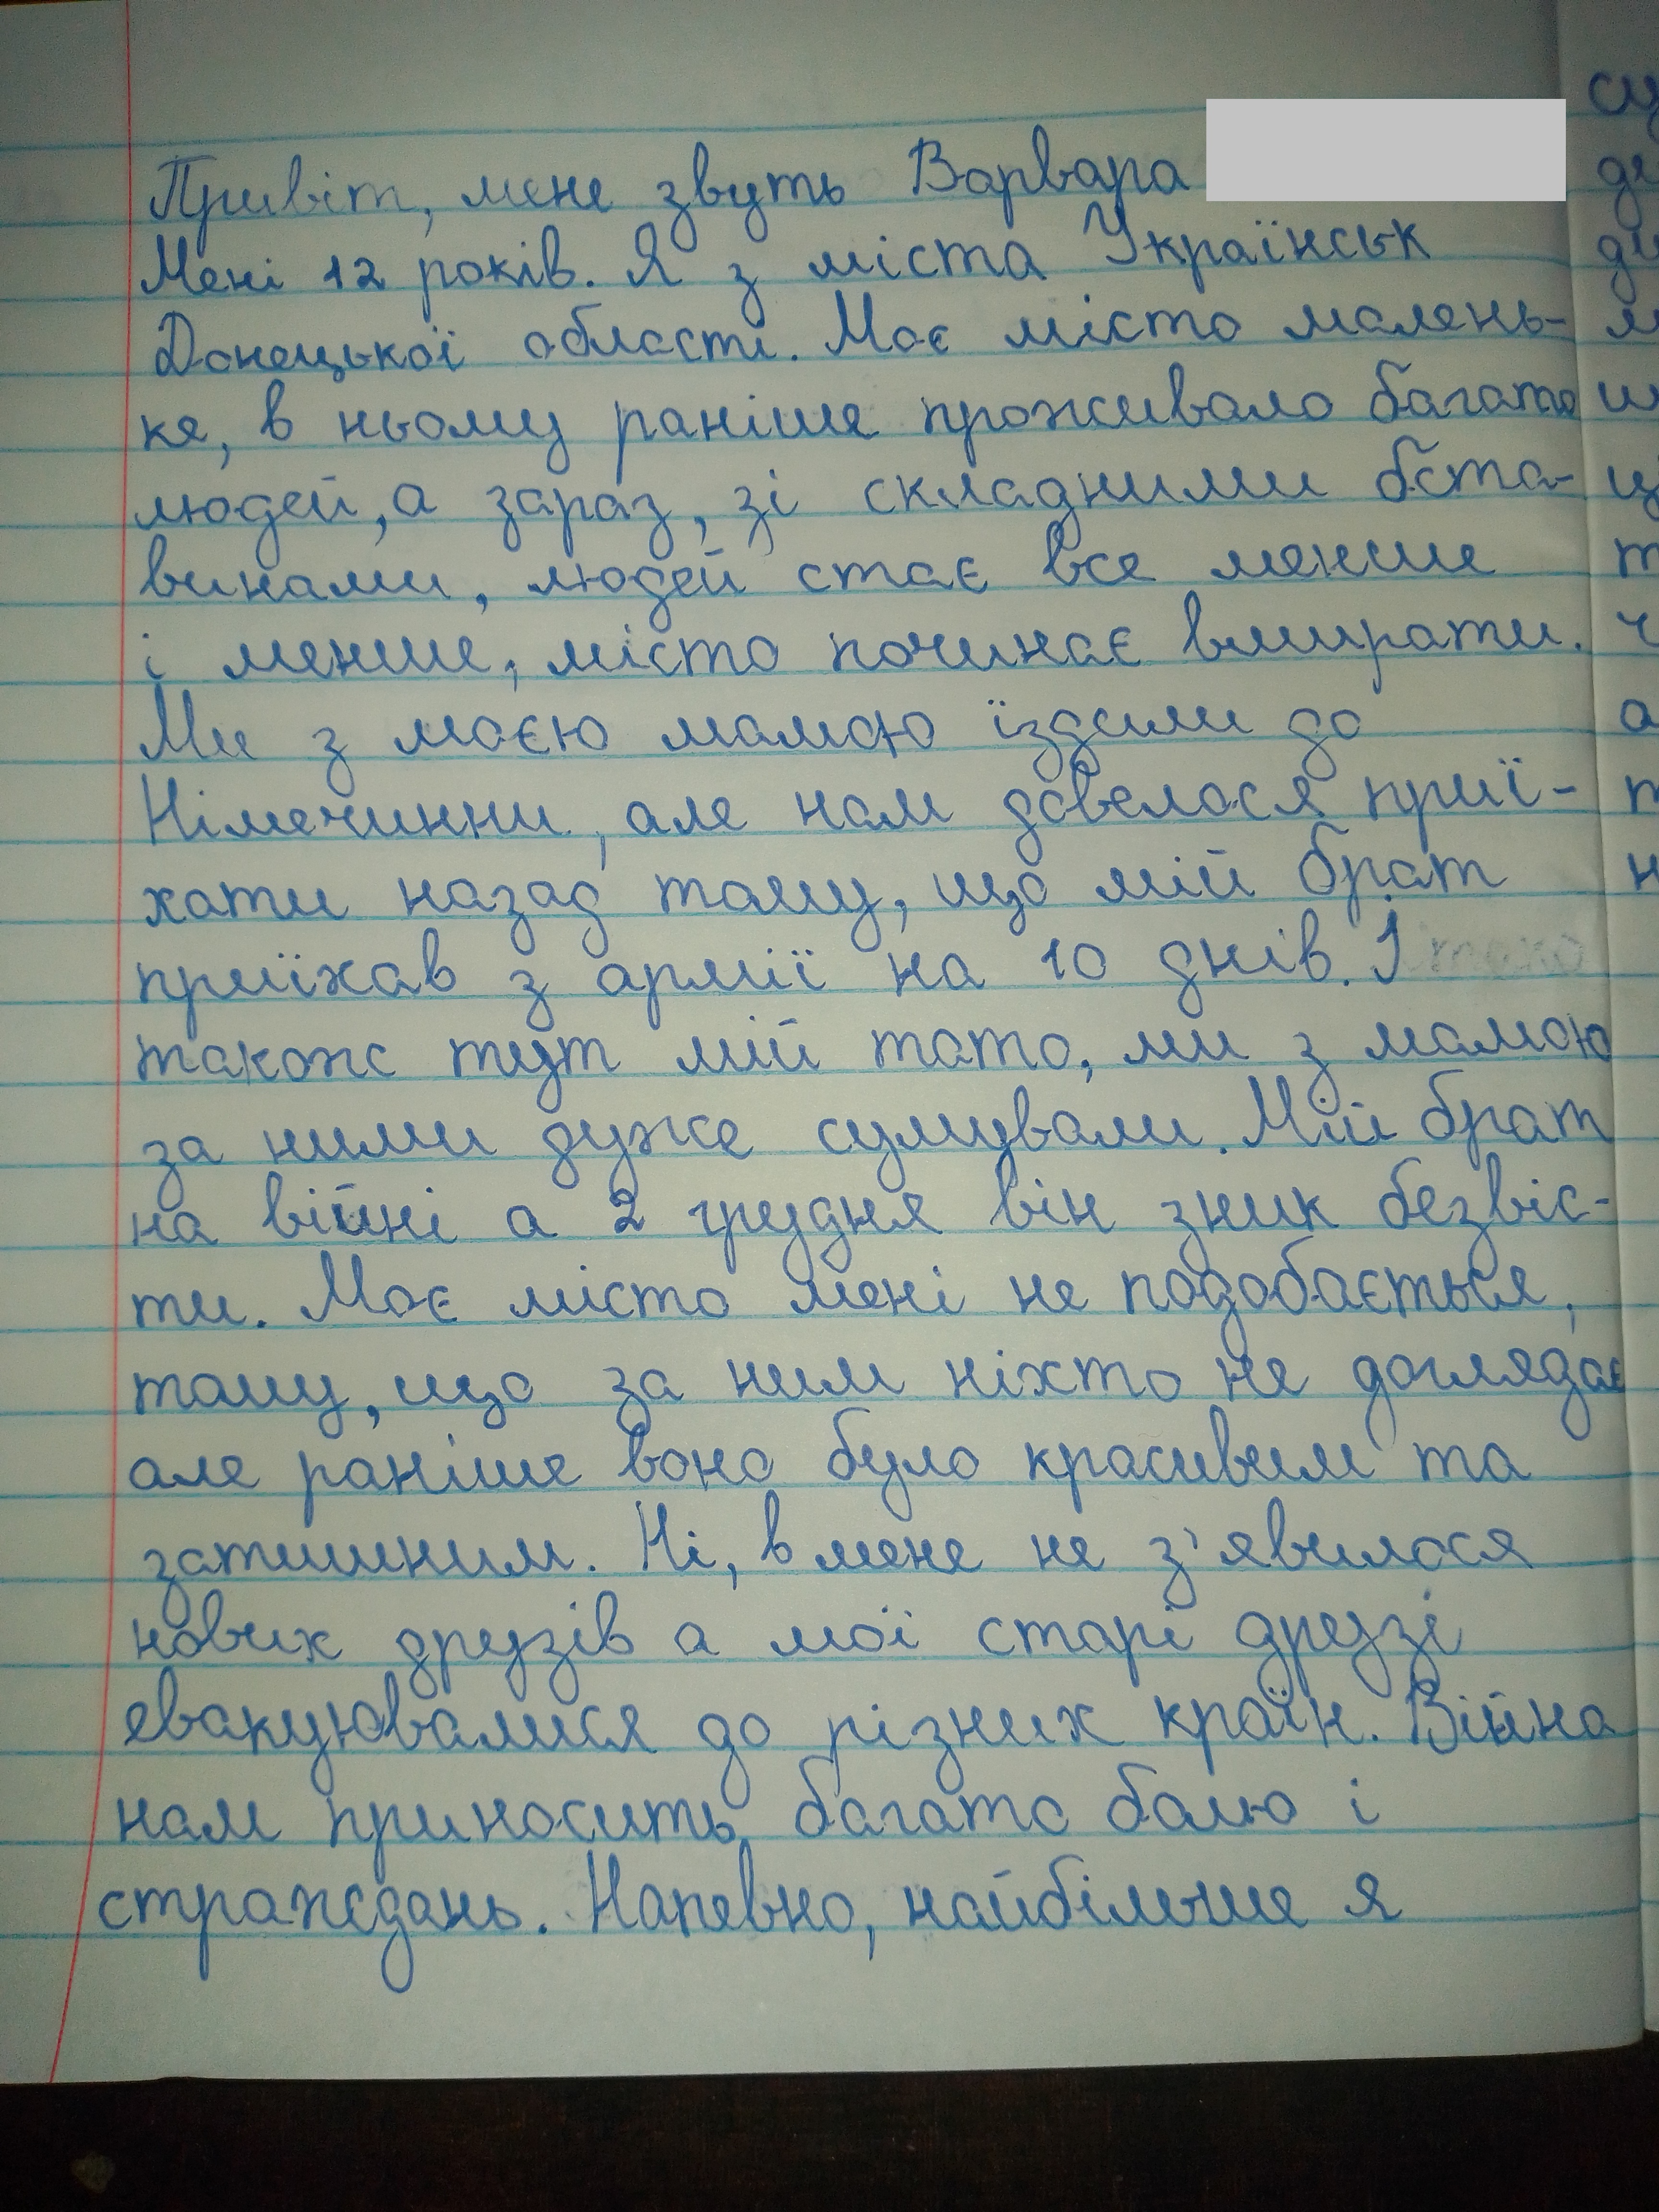 Привіт, мене звуть Варвара
Мені 12 років. Я з міста Українськ
Донецької області. Моє місто малень-
ке, в ньому раніше проживало багато
людей, а зараз, зі складними бста-
винами, людей стає все менше
і менше, місто починає вмирати.
Ми з моєю мамою їздили до
Німечинни, але нам довелося приї-
хати назад тому, що мій брат
приїхав з армії на 10 днів. І
також тут мій тато, ми з мамою
за ними дуже сумували. Мій брат
на війні а 2 грудня він зник безвіс-
ти. Моє місто мені не подобається,
тому, що за ним ніхто не доглядає
але раніше воно було красивим та
затишним. Ні, в мене не з'явилося
нових друзів а мої старі друзі
евакуювалися до різних країн. Війна
нам приносить багато болю і
страждань. Напевно, найбільше я